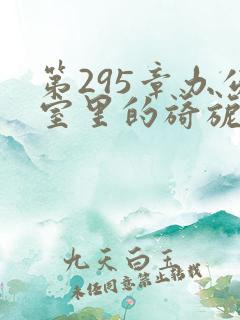 第295章办公
室里的旖旎
九天白玉
未经同意禁止转载